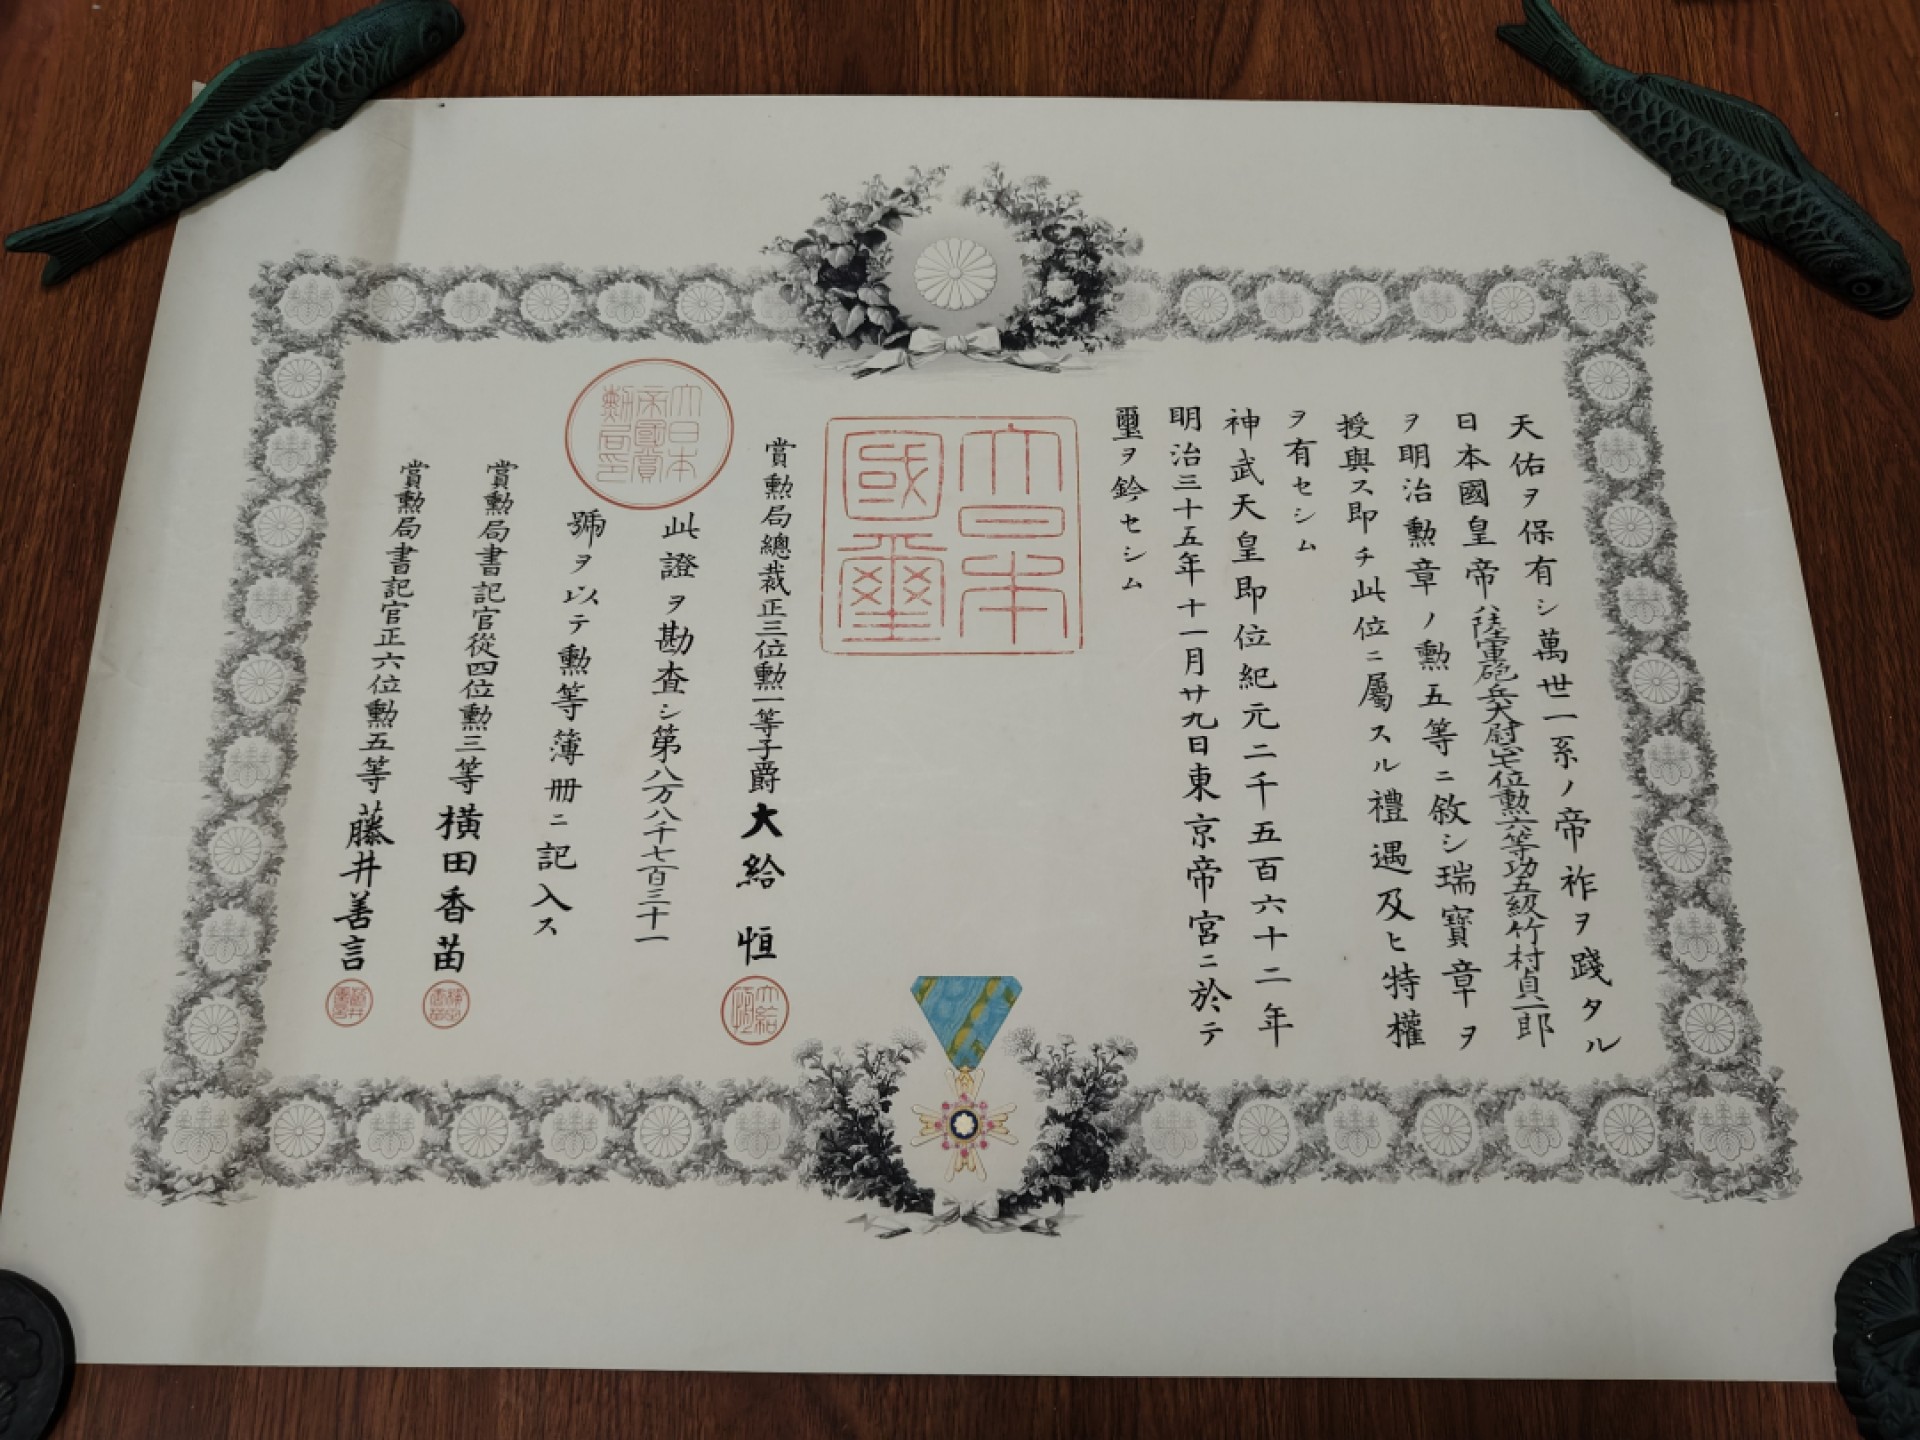 天佑ヲ保有シ萬世一系ノ帝祚ヲ踐タル
日本國皇帝ハ陸軍砲兵大尉正七位勲六等功五級竹村貞一郎
ヲ明治勲章ノ勲五等ニ敘シ瑞寶章ヲ
授與ス即チ此位ニ屬スル禮遇及ヒ特權
ヲ有セシム
神武天皇即位紀元二千五百六十二年
明治三十五年十一月廿九日東京帝宮ニ於テ
璽ヲ鈐セシム
大日本
國璽
賞勲局總裁正三位勲一等子爵大給恒
大給
恒
大日本
帝國賞
勲局印
此證ヲ勘査シ第八万八千七百三十一
號ヲ以テ勲等簿册ニ記入ス
賞勲局書記官從四位勲三等横田香苗
賞勲局書記官正六位勲五等藤井善言